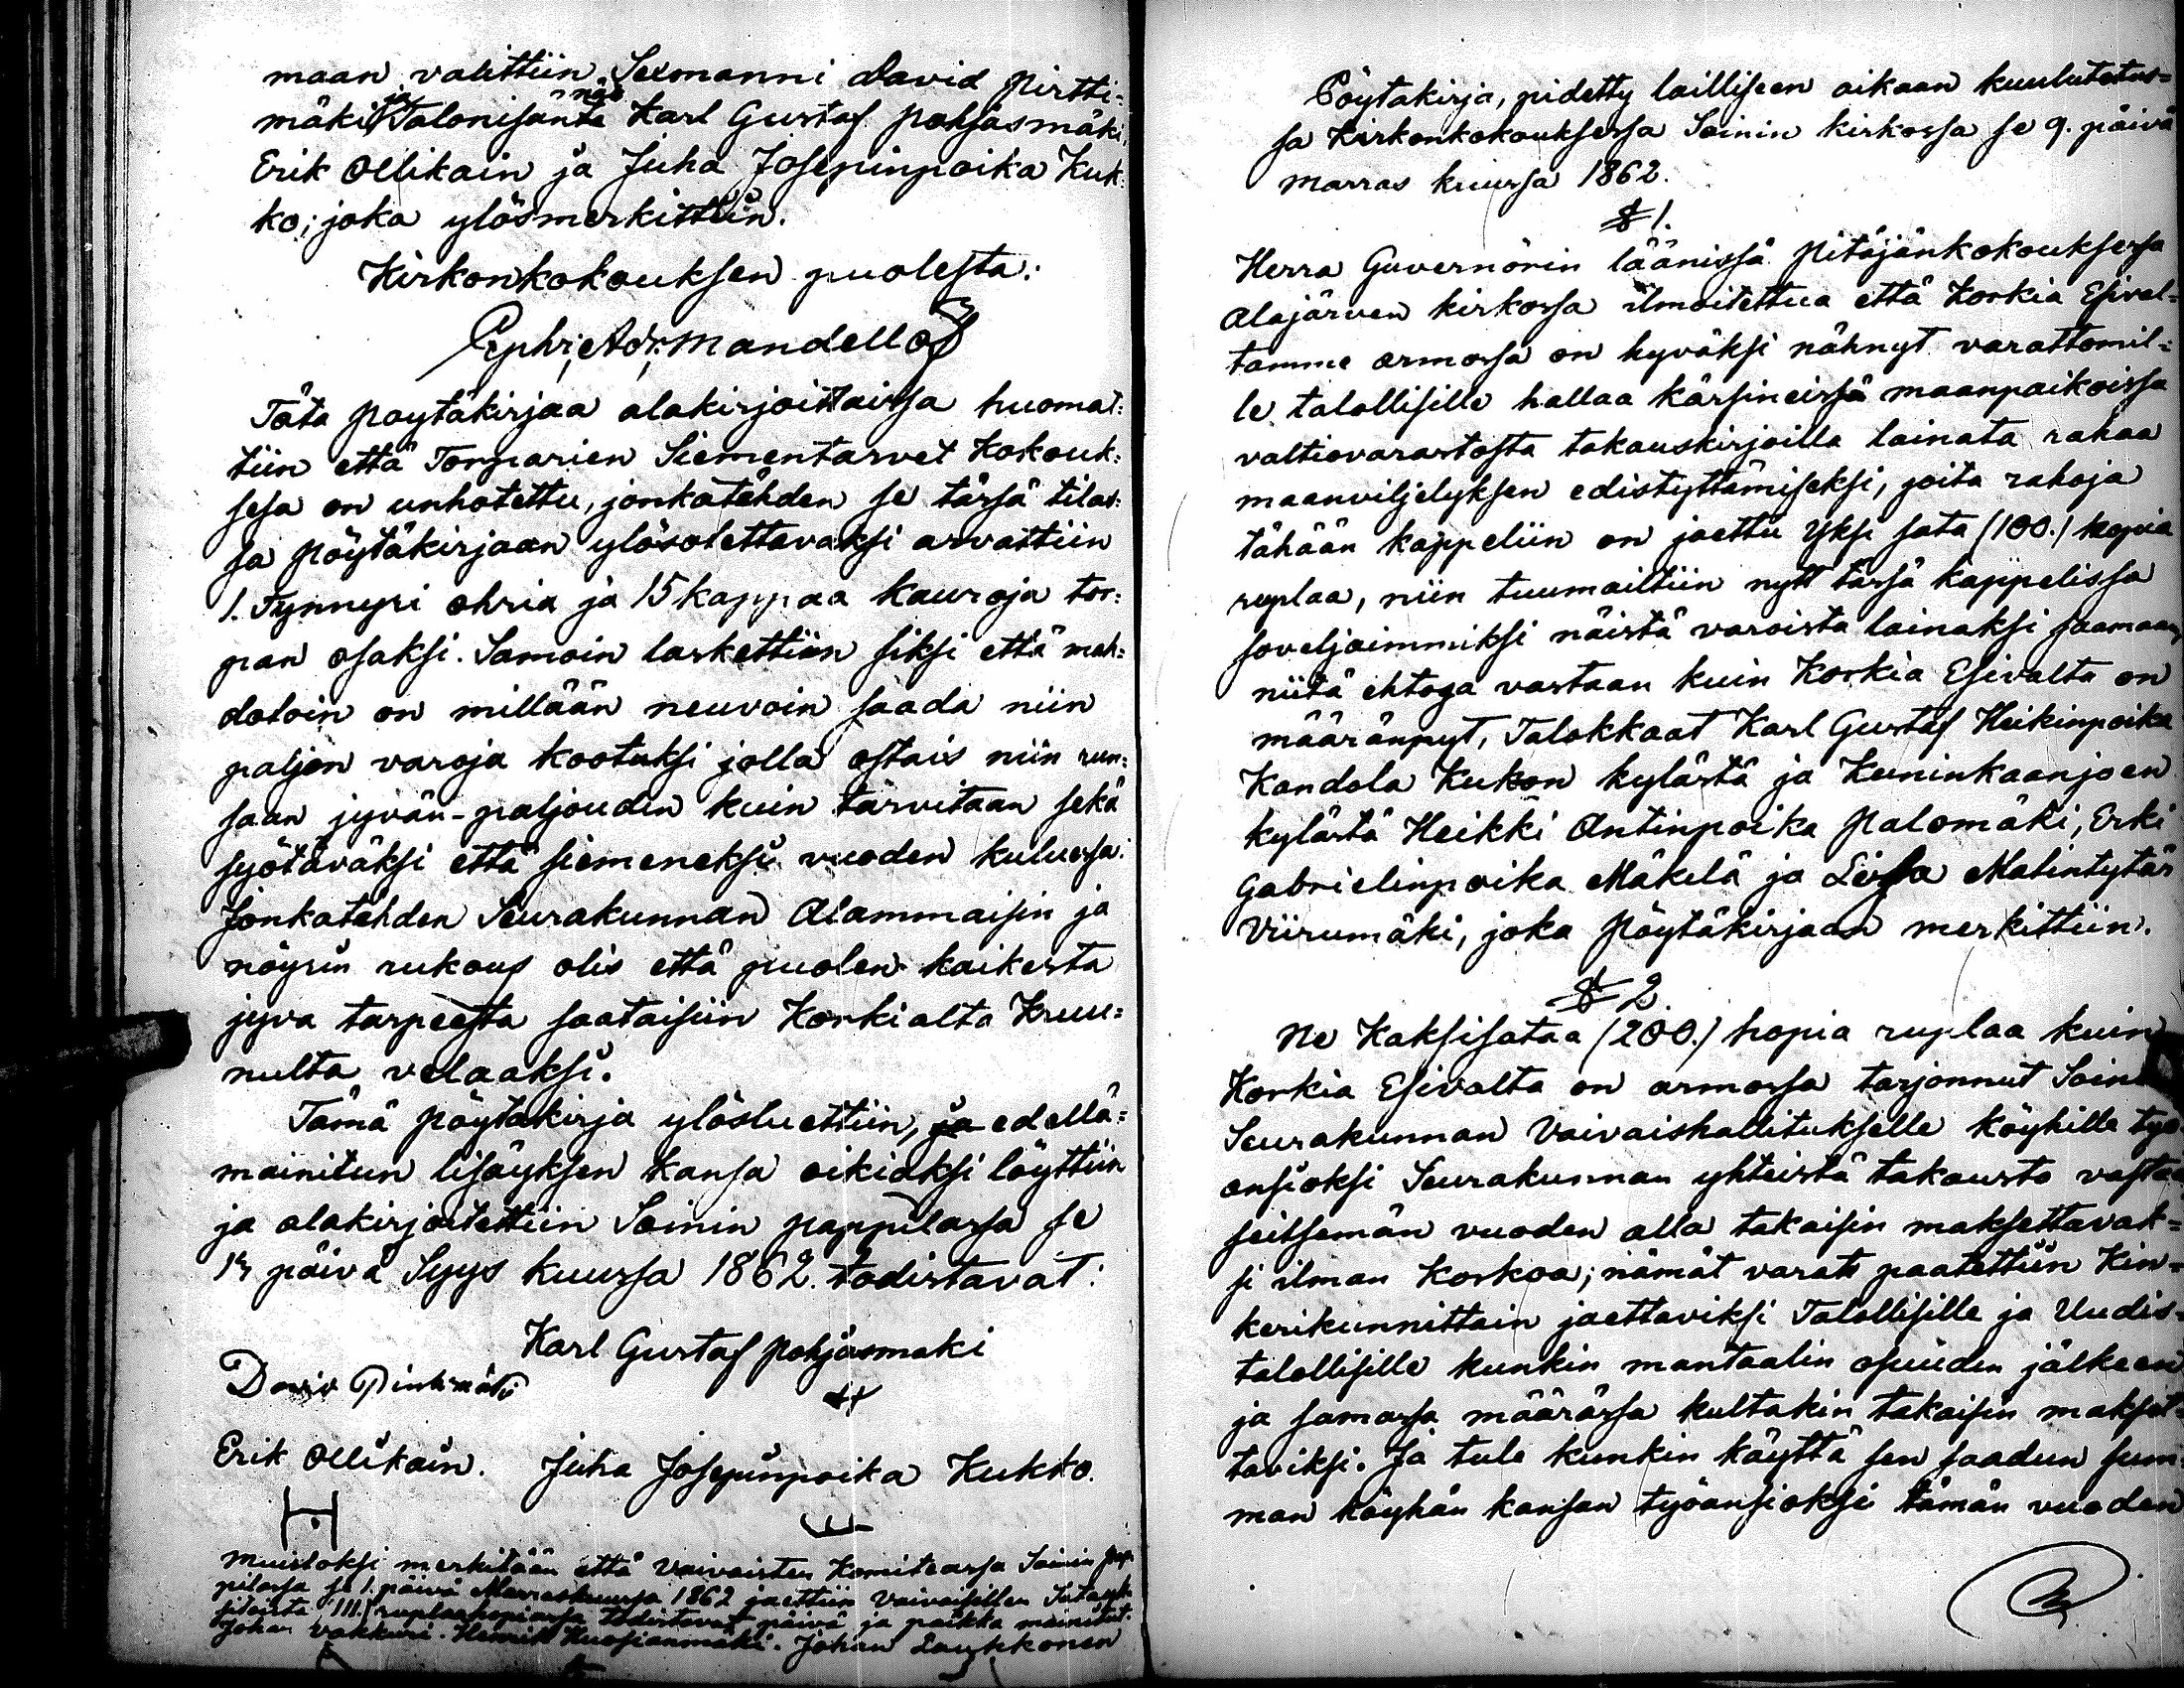 maan valittiin Sexmanni david Pirtti=
mäki ja Talonisännä Karl Gustaf Pohjasmäki,
Erik Ollikain ja Juha Josepinpoika Kuk=
ko; joka ylösmerkittiin.
Kirkonkokouksen puolesta:
Ephr; Adr; Mandellöf
Täta poytäkirjaa alakirjoittaissa huomat=
tiin että Torparien Siementarvet Kokouk=
sesa on unhotettu, jonkatähden se tässä tilas=
sa pöytäkirjaan ylösotettavaksi arvattiin
1. Tynnyri ohria ja 15 kappaa kauroja tor=
pan osaksi. Samoin laskettiin siksi että mah=
dotoin on millään neuvoin saada niin
paljon varoja kootuksi jolla ostais niin run=
saan jyvän-paljouden kuin tarvitaan sekä
syötäväksi että siemeneksi vuoden kuluessa:
Jonkatehden Seurakunnan Alammaisin ja
nöyrin rukous olis että puolen kaikesta
jyva tarpeesta saataisiin Korkialta Kruu=
nulta velaaksi.
Tämä pöytakirja ylösluettiin, ja edellä=
mainitun lisäyksen kansa oikiaksi löyttiin
ja alakirjoitettiin Soinin pappilassa se
päivä Syys kuussa 1862. todistavat:
Karl Gustaf Pohjasmaki
David Pirtimäki
Erik Ollikain. Juha Josepinpoika Kukko.
Muistoksi merkitään että Vaivaisten Komiteassa Soinin pap=
pilassa se 1. päivä Marraskuussa 1862 jaettiin Vaivaisillen
(111.) ruplaa hopiassa todistavat päivä ja paikka mainitut.
Johan Vakkuri. Henrik Kuosianmäki. Johan Laukkonen
Pöytakirja, pidetty lailliseen aikaan kuulutetus=
sa Kirkonkokouksessa Soinin kirkossa se 9. päivä
marras kuussa 1862.
§ 1.
Herra Guvernörin läänissä Pitäjänkokouksessa
Alajärven kirkossa ilmoitettua että Korkia Esival=
tamme armossa on hyväksi nähnyt varattomil=
le talollisille hallaa kärsineissä maanpaikoissa
valtiovarastosta takauskirjoilla lainata rahaa
maanviljelyksen edistyttämiseksi, joita rahoja
tähään kappeliin on jaettu yksi sata (100.) hopia
ruplaa, niin tuumailtiin nytt tässä kappelissa
soveljaimmiksi näistä varoista lainaksi saamaan,
niitä ehtoga vastaan kuin Korkia Esivalta on
määrännyt, Talokkaat Karl Gustaf Heikinpoika
Kandola Kukon kylästä ja Kuninkaanjoen
kylästä Heikki Antinpoika Palomäki, Erki
Gabrielinpoika Mäkelä ja Liisa Matintytär
Viirumäki, joka Pöytäkirjaan merkittiin.
§ 2.
Ne Kaksisataa (200.) hopia ruplaa kuin
Korkia Esivalta on armossa tarjonnut Soinin
Seurakunnan Vaivaishallitukselle köyhille työ
ansioksi Seurakunnan yhteistä takausta vasta
seitsemän vuoden alla takaisin maksettavak=
si ilman Korkoa; nämät varat paatettiin Kin=
kerikunnittain jaettaviksi Talollisille ja Uudis=
talollisille kunkin mantaalin osuuden jälkeen
ja samassa määrässa kultakin takaisin makset=
taviksi. Ja tule kunkin käyttä sen saadun sum=
man köyhän kansan työansioksi tämän vuoden